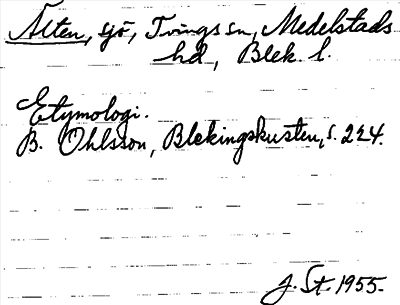 Alten, sjö, Tvings sn, Medelstads
hd, Blek. l.
Etymologi.
B. Ohlsson, Blekingskusten, s. 224.
J. St. 1955.